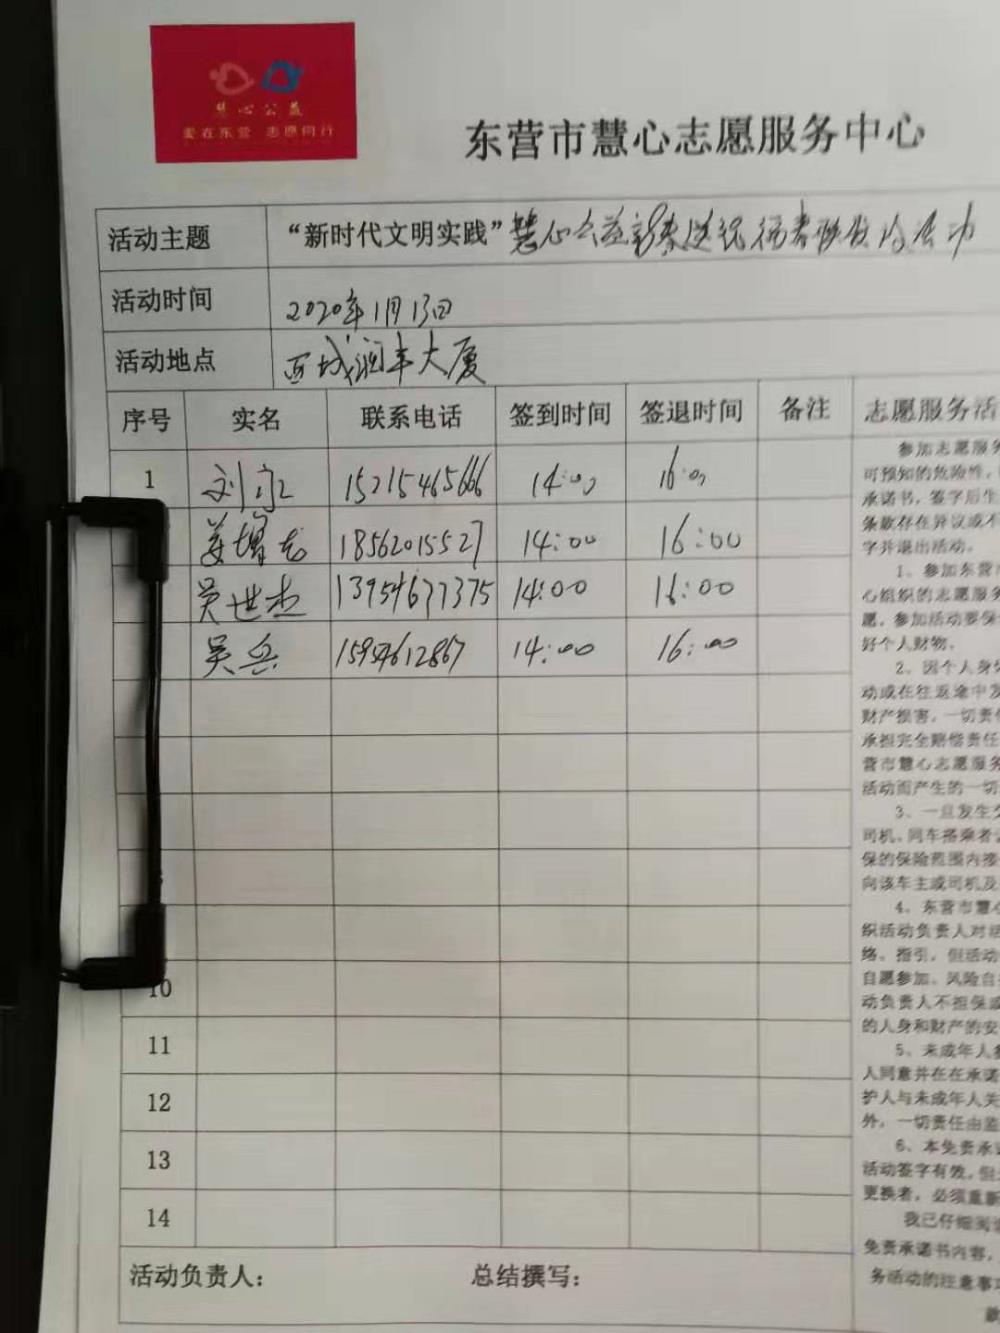 慧心公益
爱在东营 志愿同行
东营市慧心志愿服务中心
活动主题 “新时代文明实践”慧心公益 送 福春联 活动
活动时间 2020年1月13日
活动地点 西城润丰大厦
序号 实名 联系电话 签到时间 签退时间 备注 志愿服务活
1 刘 15215465666 14:00 16:00
姜增龙 18562015527 14:00 16:00
吴世杰 13954677375 14:00 16:00
吴兵 15954612867 14:00 16:00
10
11
12
13
14
活动负责人： 总结撰写：
参加志愿服务
可预知的危险性，
承诺书，签字后生
条款存在异议或不
字并退出活动。
1、参加东营市
心组织的志愿服务
愿，参加活动要保
好个人财物。
2、因个人身体
动或在往返途中发
财产损害，一切责任
承担完全赔偿责任
营市慧心志愿服务
活动而产生的一切
3、一旦发生交
司机、同车搭乘者
保的保险范围内接
向该车主或司机及
4、东营市慧心
织活动负责人对活
络、指引，但活动
自愿参加、风险自
动负责人不担保或
的人身和财产的安
5、未成年人参
人同意并在在承诺
护人与未成年人关
外，一切责任由监
6、本免责承诺
活动签字有效，但
更换者，必须重新
我已仔细阅读
免责承诺书内容，
务活动的注意事项